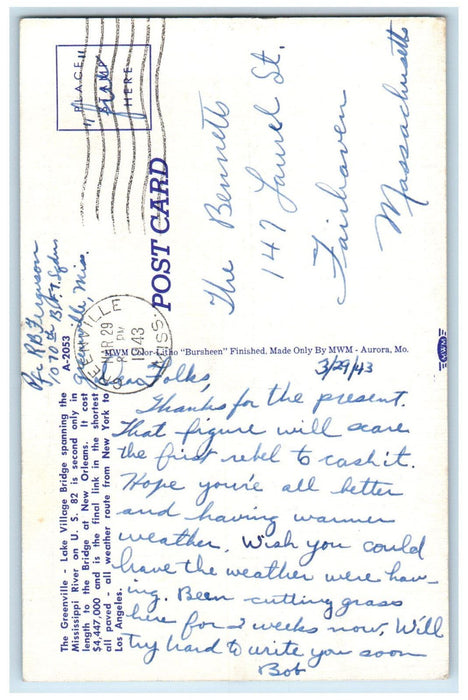 "PLACE
STAMP
HERE"
Pfc R B Ferguson
Greenville, Miss.
POST CARD
GREENVILLE
MAR 29
PM
1943
MISS.
The Bennetts
147 Laurel St.
Fairhaven
Massachusetts
A-2053
MWM Color-Litho "Bursheen" Finished, Made Only By MWM - Aurora, Mo.
MWM
The Greenville - Lake Village Bridge spanning the
Mississippi River on U. S. 82 is second only in
length to the Bridge at New Orleans. It cost
$4,447,000 and is the final link in the shortest
all paved - all weather route from New York to
Los Angeles.
3/29/43
Dear Folks,
Thanks for the present.
That figure will scare
the first rebel to cash it.
Hope you're all better
and having warmer
weather. Wish you could
have the weather we're hav-
ing. Been cutting grass
here for 2 weeks now. Will
try hard to write you soon
Bob